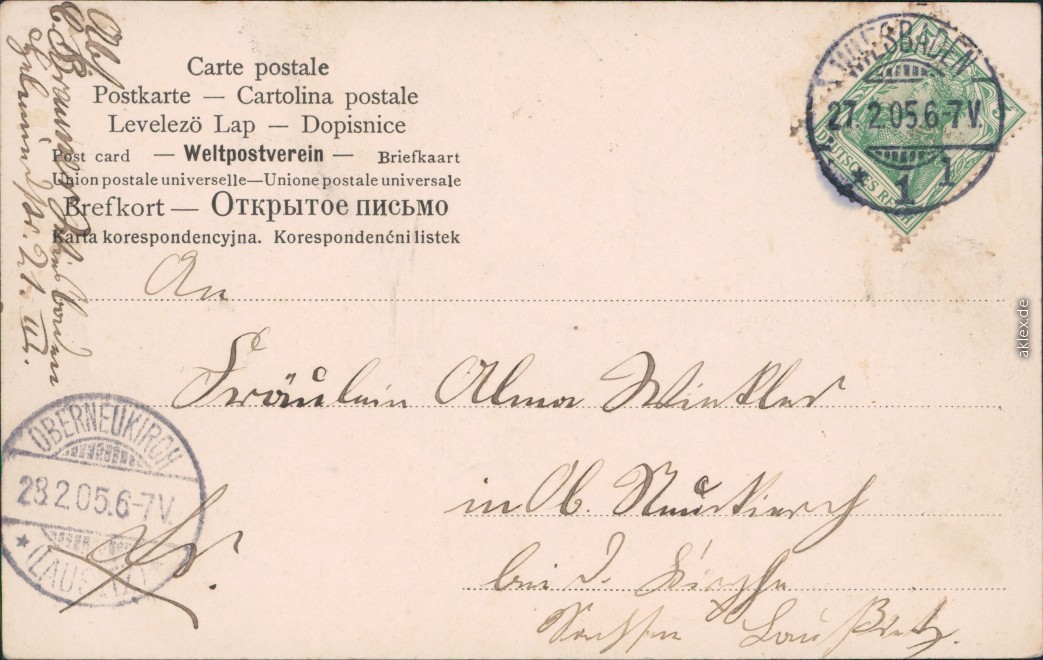 Carte postale
Postkarte — Cartolina postale
Levelező Lap — Dopisnice
Post card — Weltpostverein — Briefkaart
Union postale universelle—Unione postale universale
Brefkort — Открытое письмо
Karta korespondencyjna. Korespondenční listek
WIESBADEN
27.2.05.6-7V.
* 1 1
DEUTSCHES REICH
An
Fräulein Alma Winkler
in Ob. Neukirch
bei d. Kirche
Sachsen Lausitz.
OBERNEUKIRCH
28.2.05.6-7V.
* (LAUSITZ)
Abs.
Wiesbaden
Nr. 21. III.
aklex.de